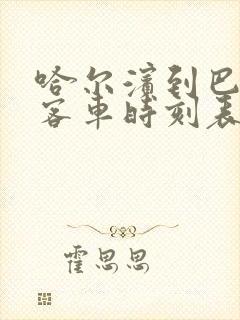 哈尔滨到巴
客车时刻表
霍思思